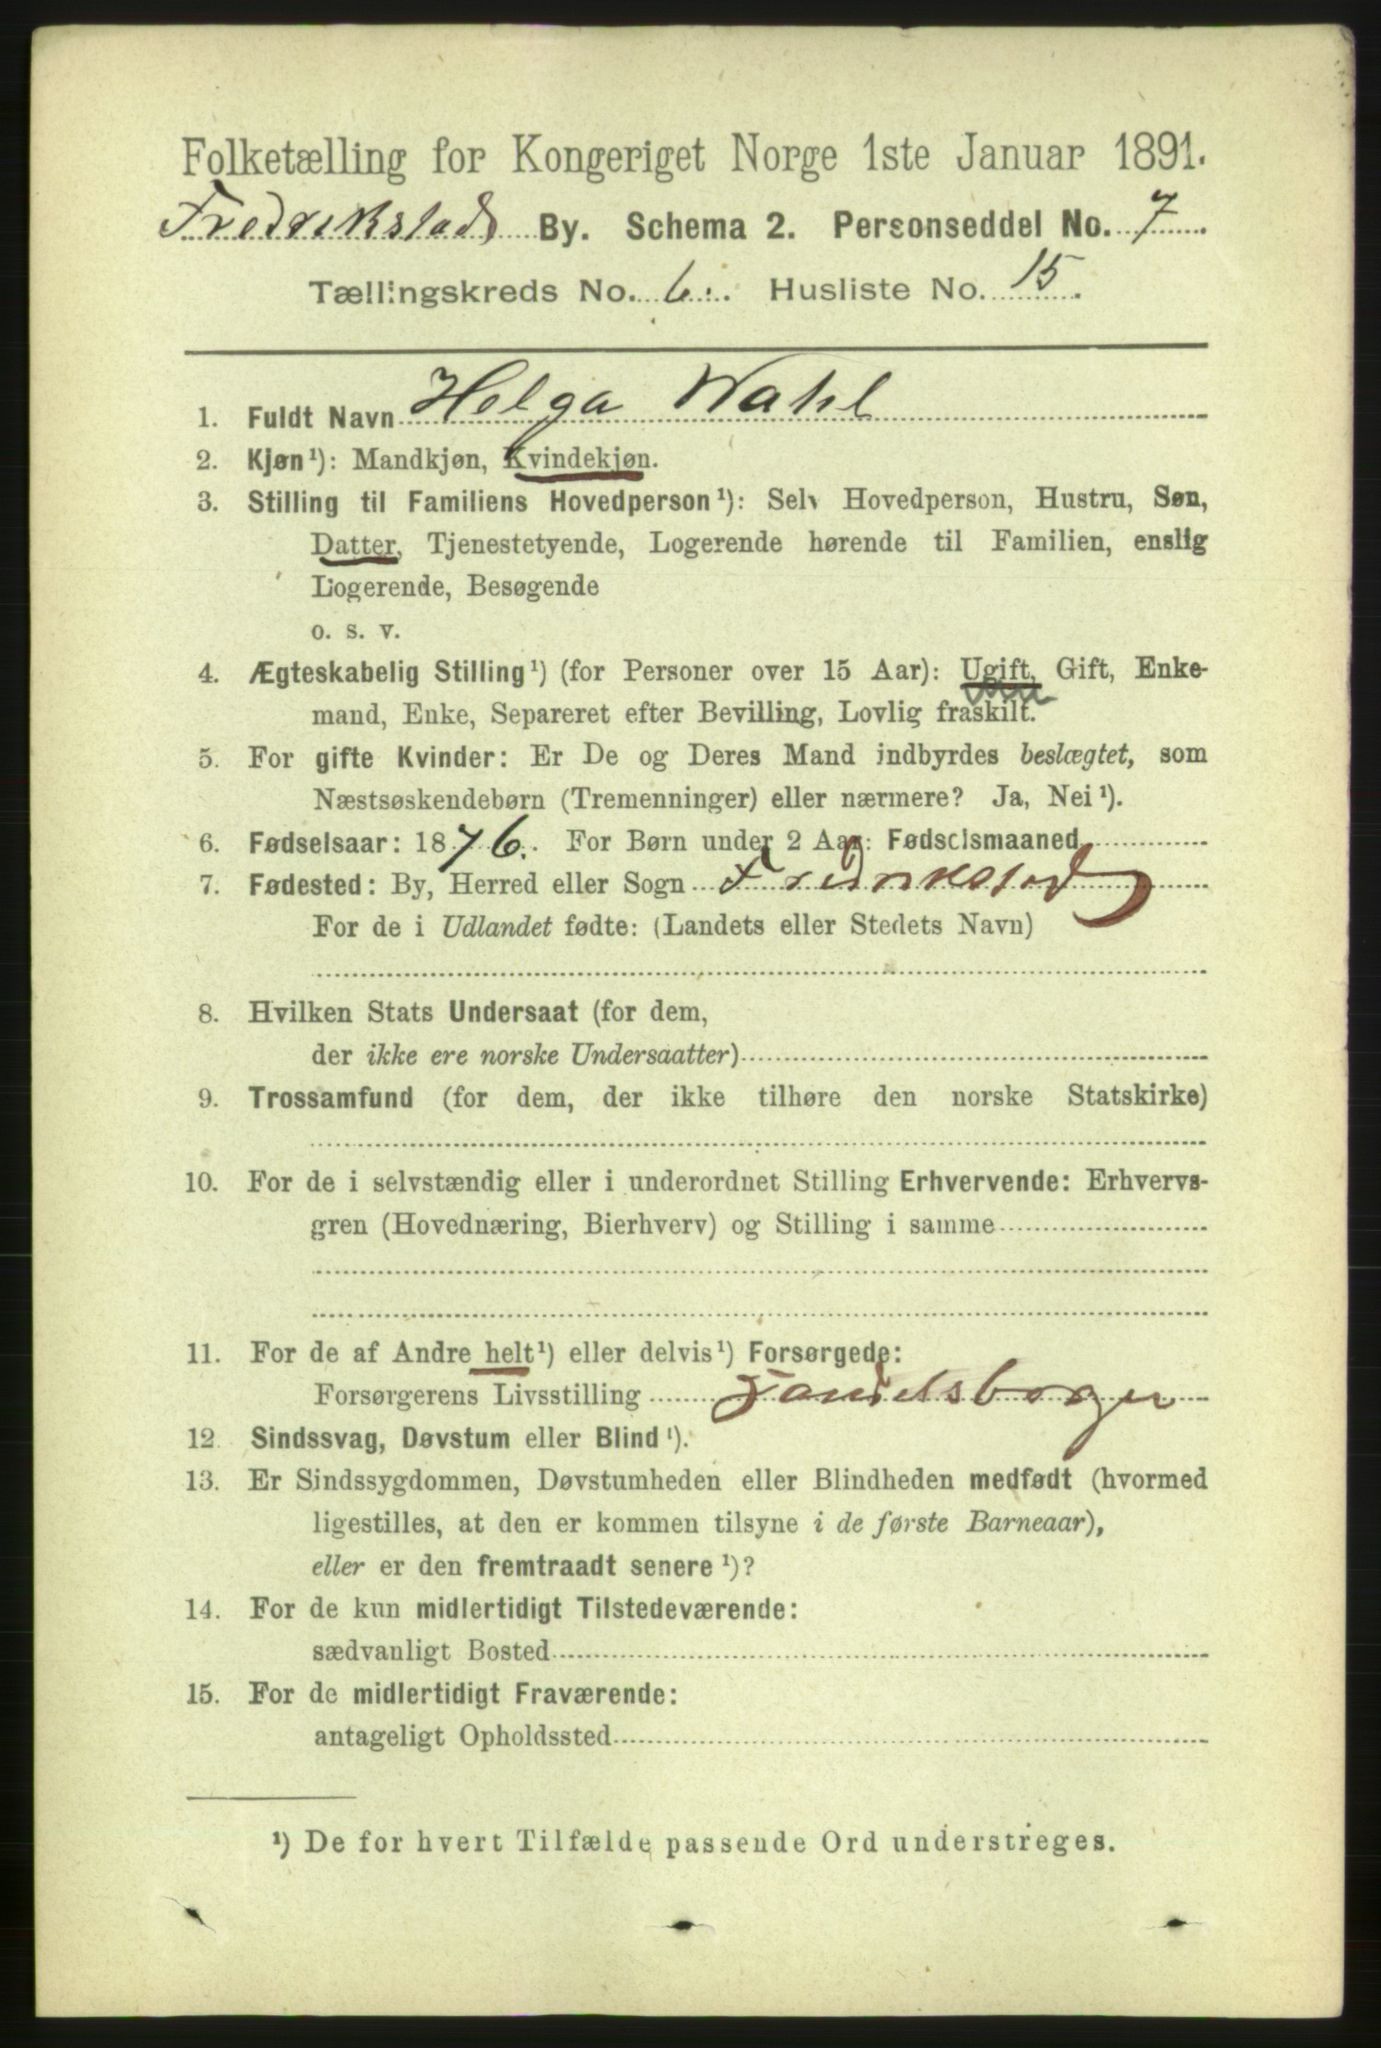 Folketælling for Kongeriget Norge 1ste Januar 1891.
Fredrikstad By. Schema 2. Personseddel No. 7
Tællingskreds No. 6. Husliste No. 15.
1. Fuldt Navn Helga Wahl
2. Kjøn¹): Mandkjøn, Kvindekjøn.
3. Stilling til Familiens Hovedperson¹): Selv Hovedperson, Hustru, Søn,
Datter, Tjenestetyende, Logerende hørende til Familien, enslig
Logerende, Besøgende
o. s. v.
4. Ægteskabelig Stilling¹) (for Personer over 15 Aar): Ugift, Gift, Enke-
mand, Enke, Separeret efter Bevilling, Lovlig fraskilt.
5. For gifte Kvinder: Er De og Deres Mand indbyrdes beslægtet, som
Næstsøskendebørn (Tremenninger) eller nærmere? Ja, Nei¹).
6. Fødselsaar: 1876. For Børn under 2 Aar: Fødselsmaaned
7. Fødested: By, Herred eller Sogn Fredrikstad
For de i Udlandet fødte: (Landets eller Stedets Navn)
8. Hvilken Stats Undersaat (for dem,
der ikke ere norske Undersaatter)
9. Trossamfund (for dem, der ikke tilhøre den norske Statskirke)
10. For de i selvstændig eller i underordnet Stilling Erhvervende: Erhvervs-
gren (Hovednæring, Bierhverv) og Stilling i samme
11. For de af Andre helt¹) eller delvis¹) Forsørgede:
Forsørgerens Livsstilling Handelsborger
12. Sindssvag, Døvstum eller Blind¹).
13. Er Sindssygdommen, Døvstumheden eller Blindheden medfødt (hvormed
ligestilles, at den er kommen tilsyne i de første Barneaar),
eller er den fremtraadt senere¹)?
14. For de kun midlertidigt Tilstedeværende:
sædvanligt Bosted
15. For de midlertidigt Fraværende:
antageligt Opholdssted
¹) De for hvert Tilfælde passende Ord understreges.